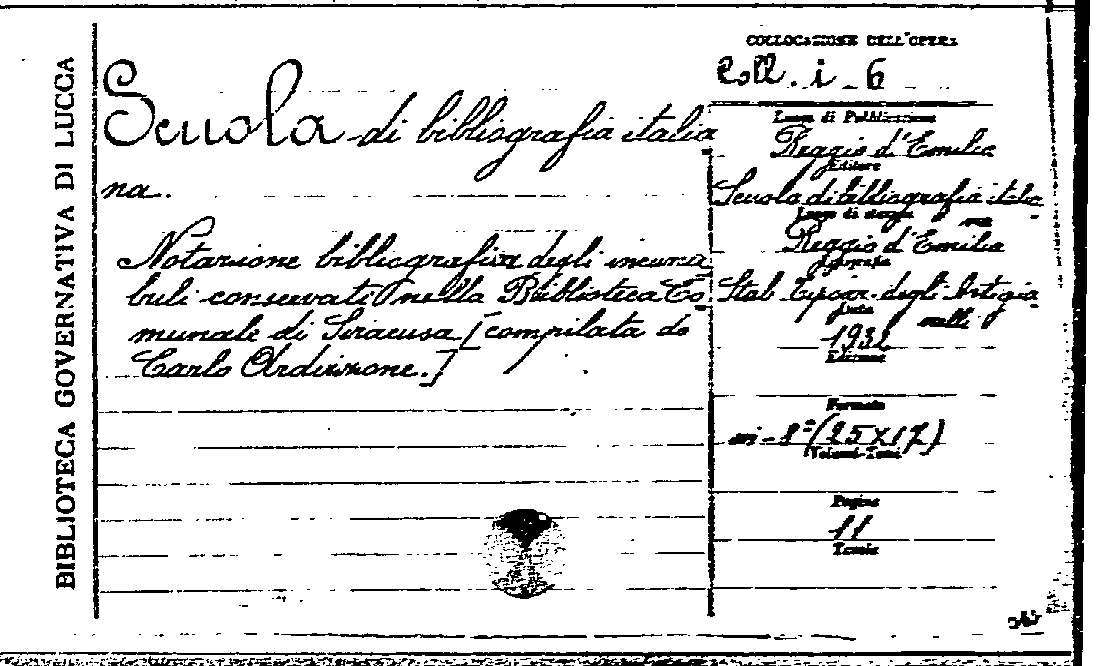 BIBLIOTECA GOVERNATIVA DI LUCCA
Scuola di bibliografia italia
na.
Notazione bibliografica degli incuna
buli conservati nella Biblioteca Co
munale di Siracusa [compilata da
Carlo Ardizzone.]
COLLOCAZIONE DELL'OPERA
Coll. i - 6
Luogo di Pubblicazione
Reggio d'Emilia
Editore
Scuola di bibliografia italia
na
Luogo di stampa
Reggio d'Emilia
Tipografia
Stab. Tipogr. degli Artigia
nelli
Data
1932
Edizione
Formato
in-8° (25x17)
Volumi-Tomi
Pagine
11
Tavole